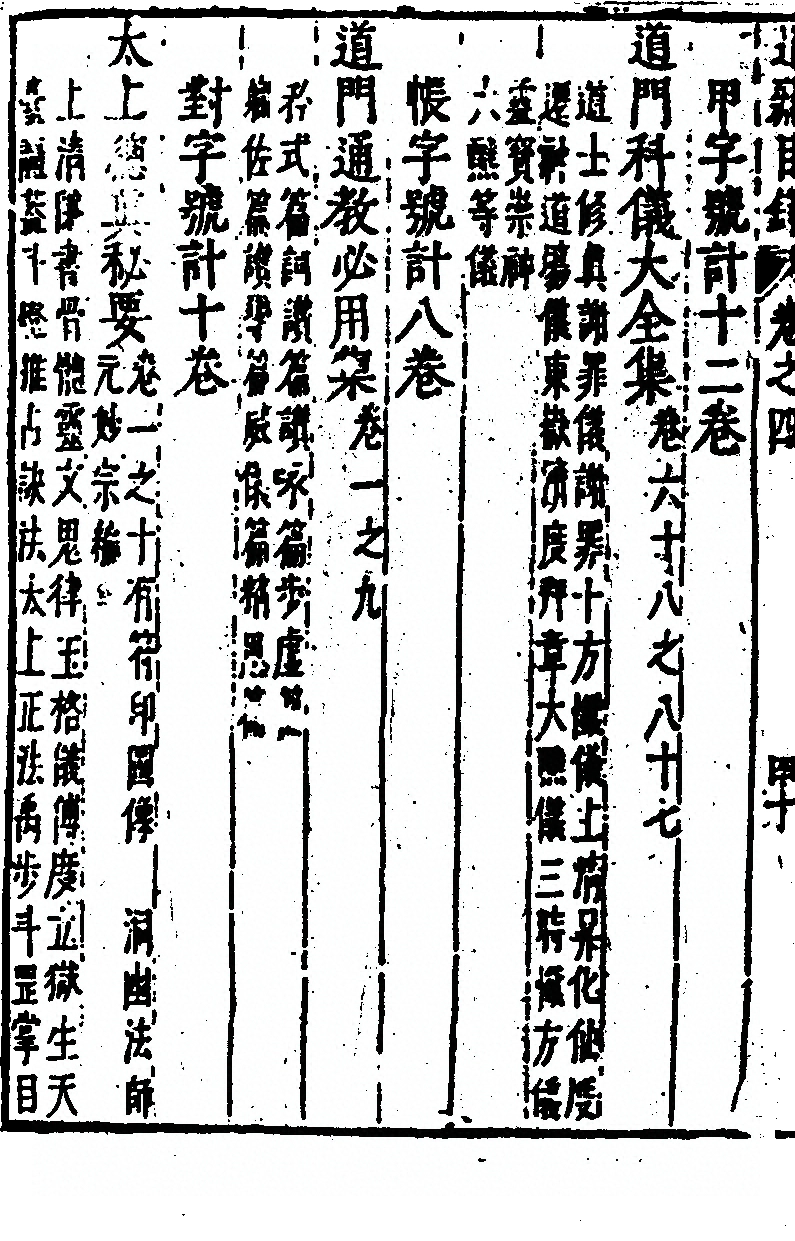 道藏目錄卷之四
甲十
甲字號計十二卷
道門科儀大全集卷六十八之八十七
道士修真謝罪儀謝罪十方懺儀上清昇化仙度
遷神道場儀東嶽濟度拜章大醮儀三時懺方儀
靈寶崇神
大醮等儀
帳字號計八卷
道門通教必用集卷一之九
矜式篇詞讚篇讚咏篇步虛
贊佐篇讚導篇威儀篇精思
對字號計十卷
太上總真秘要卷一之十有符印圖像 洞幽法師
元妙宗編
上清隱書骨髓靈文思律玉格儀傅度立獄生天
斗燈推占訣法太上正法禹步斗罡掌目